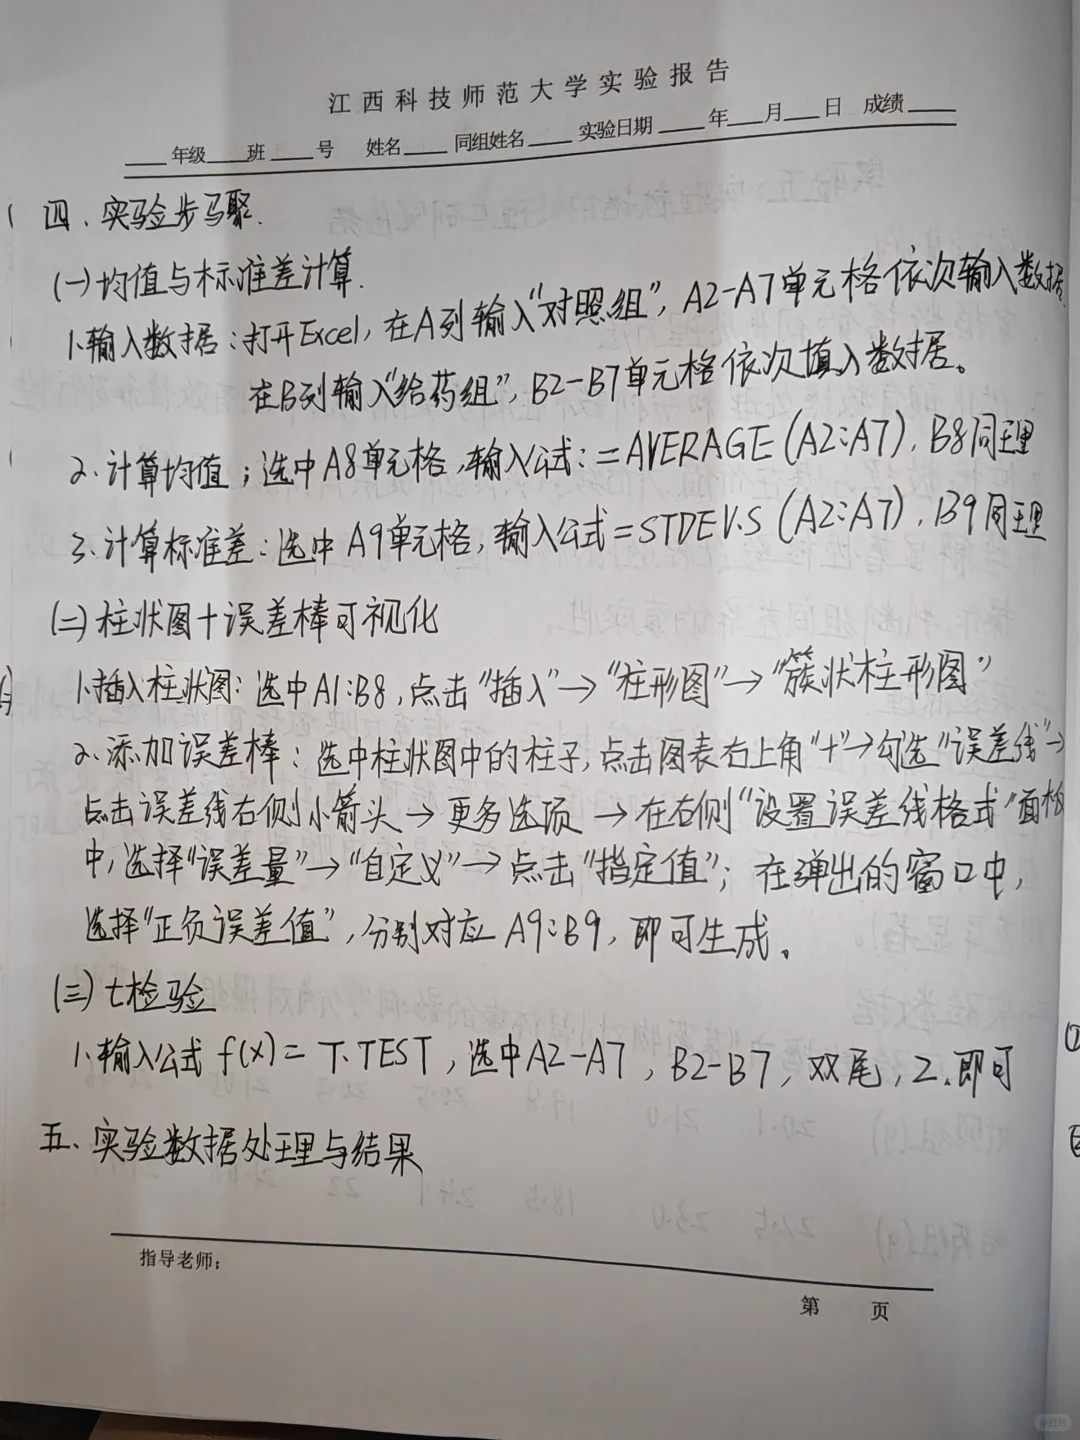 江西科技师范大学实验报告
年级 班 号 姓名 同组姓名 实验日期 年 月 日 成绩
四、实验步骤.
(一)均值与标准差计算.
1.输入数据:打开Excel,在A列输入"对照组",A2-A7单元格依次输入数据
在B列输入"给药组",B2-B7单元格依次填入数据。
2.计算均值;选中A8单元格,输入公式:=AVERAGE(A2:A7),B8同理
3.计算标准差:选中A9单元格,输入公式=STDEV.S(A2:A7),B9同理
(二)柱状图+误差棒可视化
1.插入柱状图:选中A1:B8,点击"插入"→"柱形图"→"簇状柱形图"
2.添加误差棒:选中柱状图中的柱子,点击图表右上角"+"→勾选"误差线"→
点击误差线右侧小箭头→更多选项→在右侧"设置误差线格式"面板
中,选择"误差量"→"自定义"→点击"指定值";在弹出的窗口中,
选择"正负误差值",分别对应A9:B9,即可生成。
(三)t检验
1.输入公式f(x)=T.TEST,选中A2-A7,B2-B7,双尾,2.即可
五、实验数据处理与结果
指导老师:
第 页
小红书